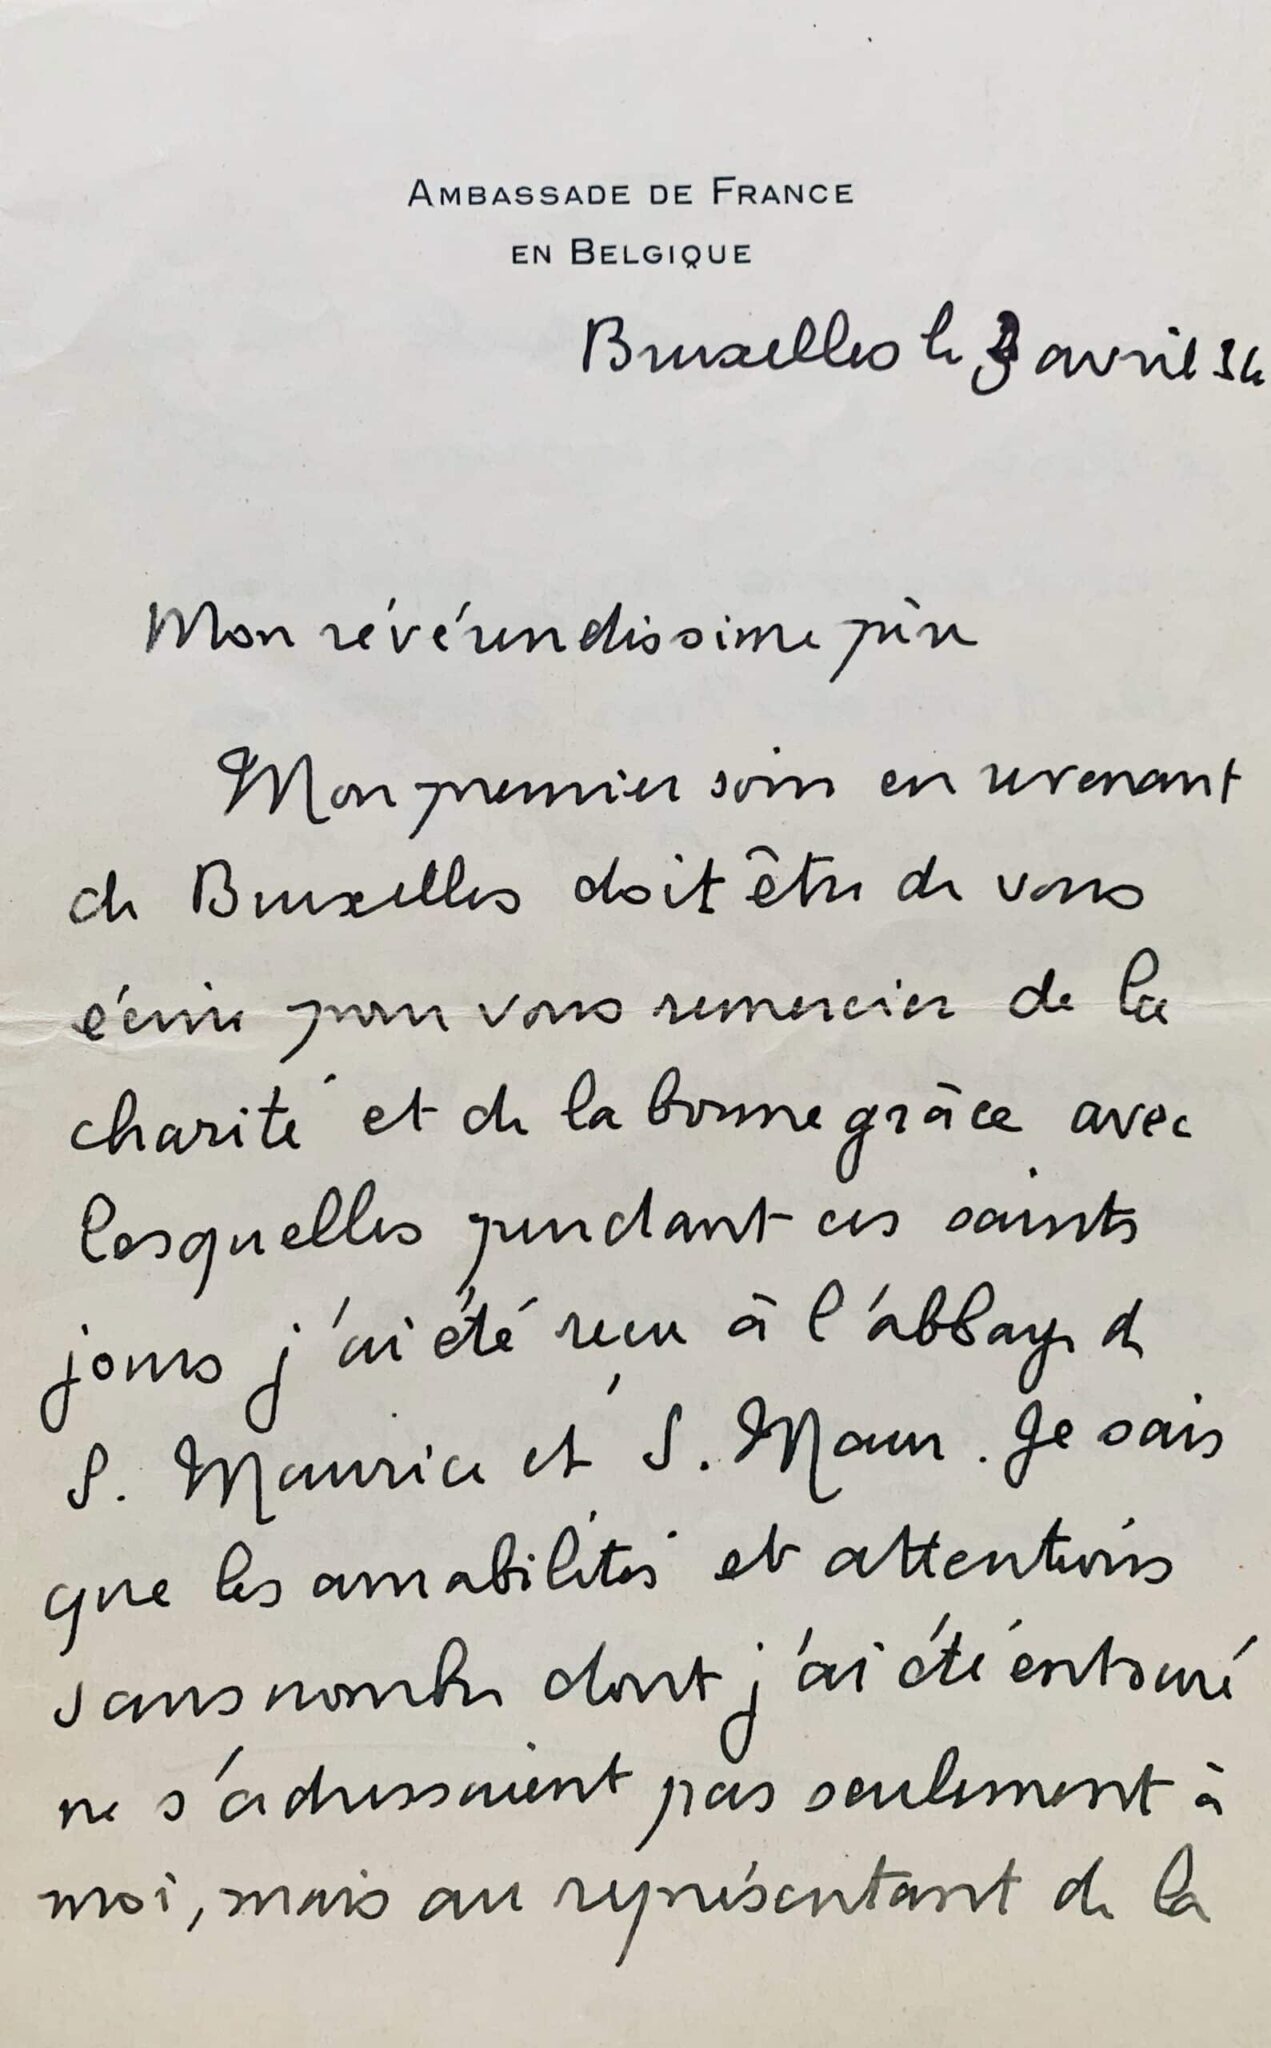 AMBASSADE DE FRANCE
EN BELGIQUE
Bruxelles le avril 34
Mon révérendissime père
Mon premier soin en revenant
de Bruxelles doit être de vous
écrire pour vous remercier de la
charité et de la bonne grâce avec
lesquelles pendant ces saints
jours j'ai été reçu à l'abbaye de
S. Maurice et S. Maur. Je sais
que les amabilités et attentions
sans nombre dont j'ai été entouré
ne s'adressaient pas seulement à
moi, mais au représentant de la